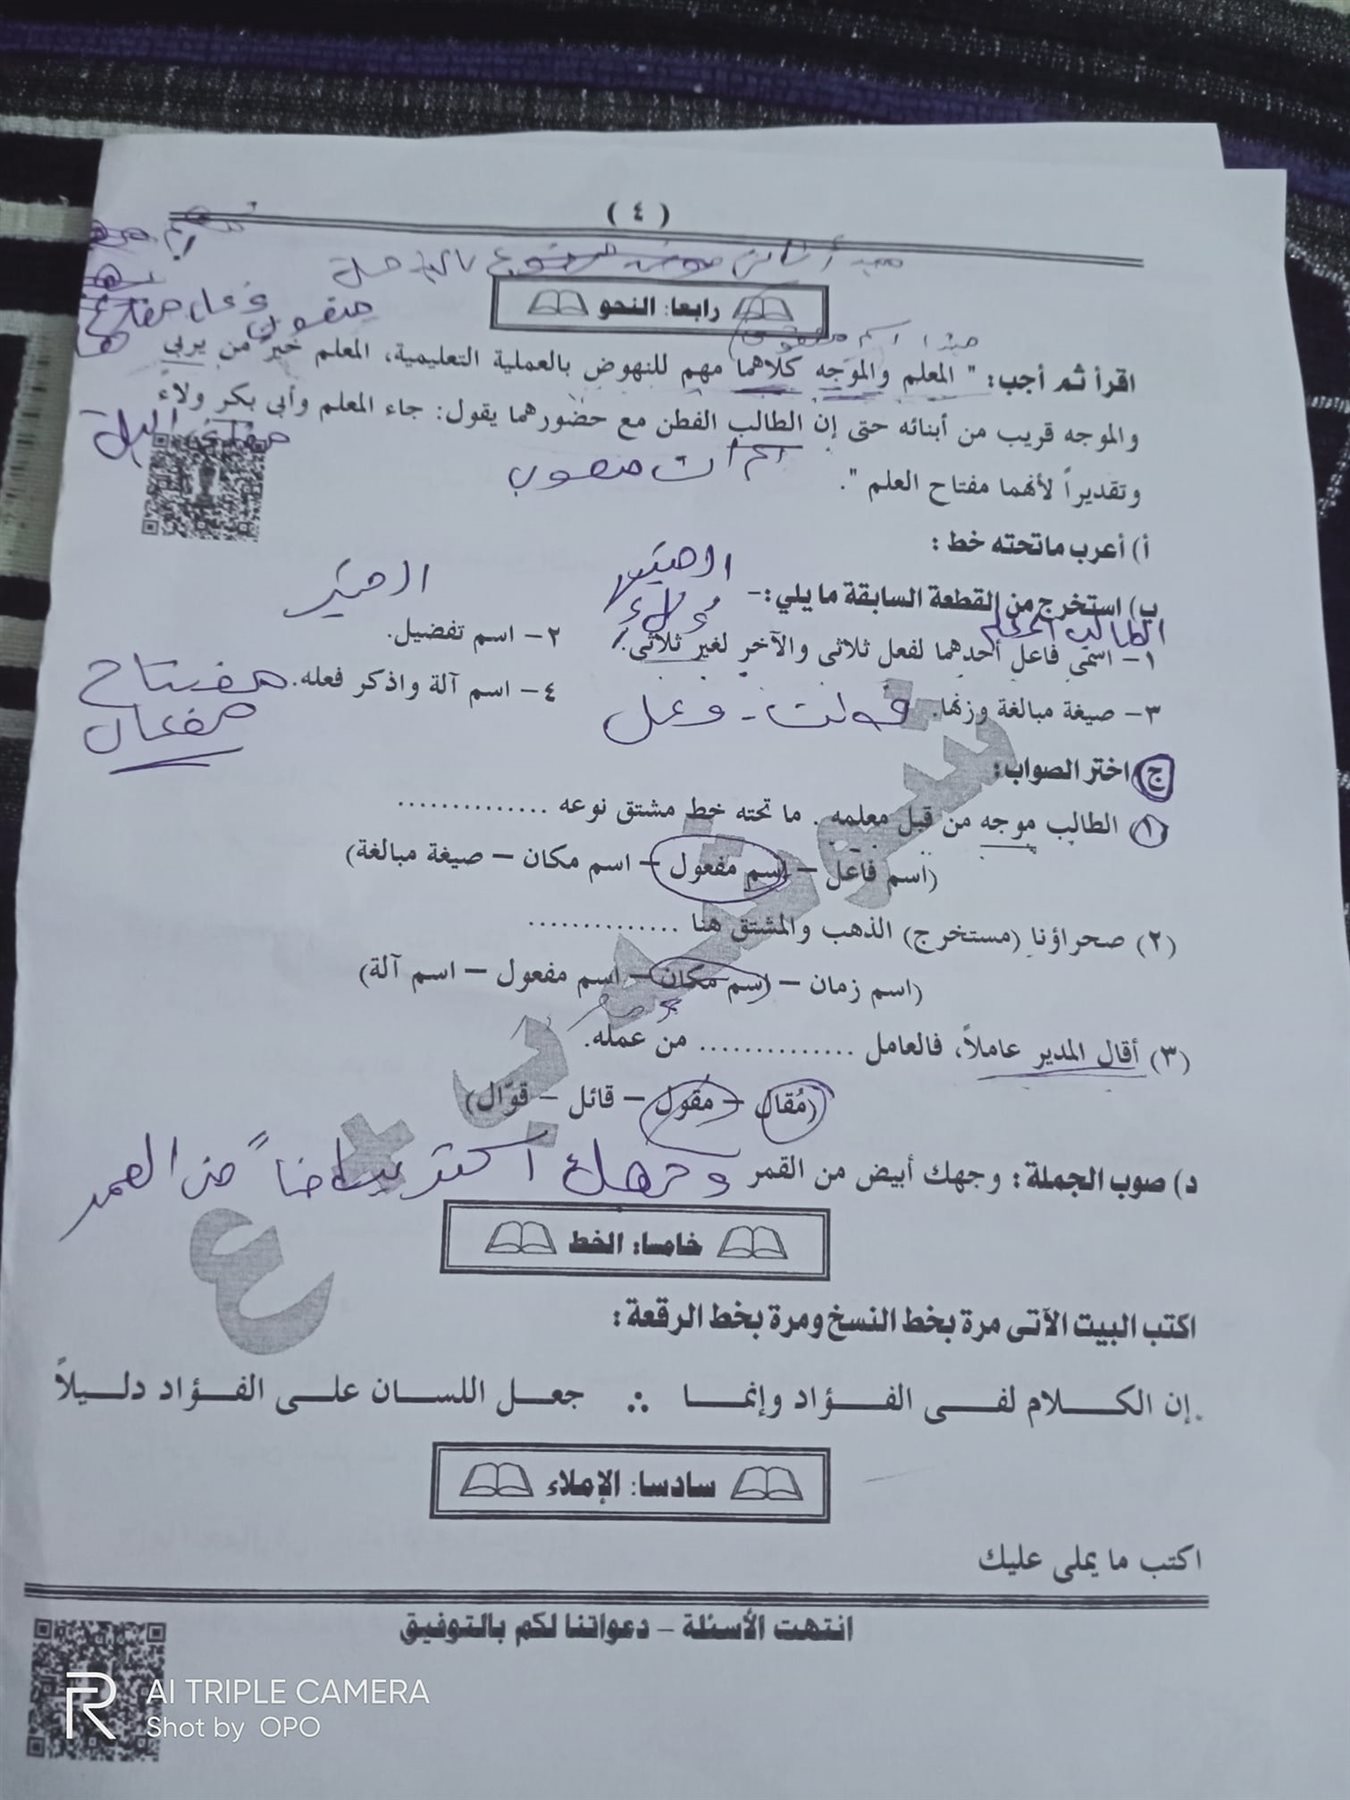 ( ٤ )
رابعا: النحو
اقرأ ثم أجب: " المعلم والموجه كلاهما مهم للنهوض بالعملية التعليمية، المعلم خير من يربي
والموجه قريب من أبنائه حتى إن الطالب الفطن مع حضورهما يقول: جاء المعلم وأبى بكر ولاءً
وتقديراً لأنهما مفتاح العلم ".
أ) أعرب ماتحته خط :
ب) استخرج من القطعة السابقة ما يلي:-
الطالب المعلم
١- اسمى فاعل أحدهما لفعل ثلاثى والآخر لغير ثلاثى.
٢- اسم تفضيل.
٣- صيغة مبالغة وزنها.
٤- اسم آلة واذكر فعله.
مفتاح
مفعال
ج) اختر الصواب:
(١) الطالب موجه من قبل معلمه . ما تحته خط مشتق نوعه ..............
(اسم فاعل – اسم مفعول – اسم مكان – صيغة مبالغة)
(٢) صحراؤنا (مستخرج) الذهب والمشتق هنا ..............
(اسم زمان – اسم مكان – اسم مفعول – اسم آلة)
(٣) أقال المدير عاملاً، فالعامل .............. من عمله.
(مُقال – مقول – قائل – قوّال)
د) صوب الجملة : وجهك أبيض من القمر
وجهك أكثر بياضاً من القمر
خامسا: الخط
اكتب البيت الآتى مرة بخط النسخ ومرة بخط الرقعة :
إن الكلام لفى الفؤاد وإنما ∴ جعل اللسان على الفؤاد دليلاً
سادسا: الإملاء
اكتب ما يملى عليك
انتهت الأسئلة – دعواتنا لكم بالتوفيق
AI TRIPLE CAMERA
Shot by OPO